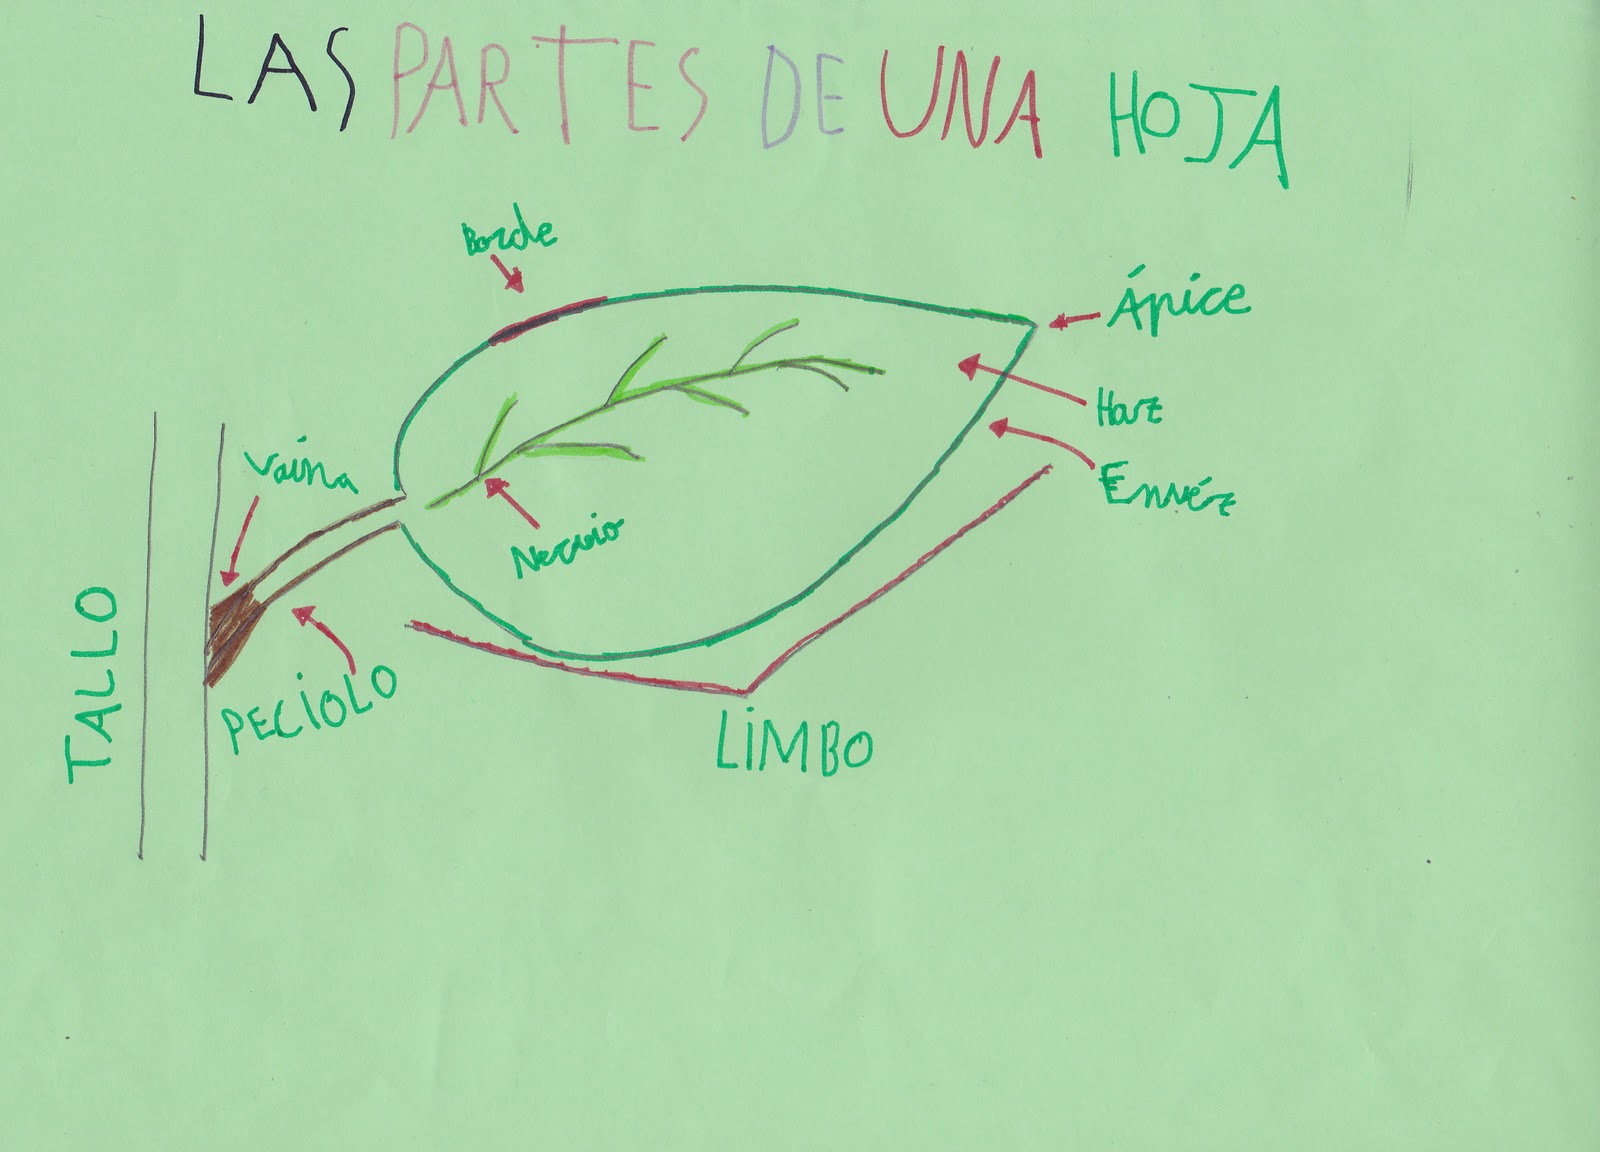 LAS PARTES DE UNA HOJA
Borde
Ápice
Haz
Envéz
Vaina
Nervio
TALLO
PECIOLO
LIMBO